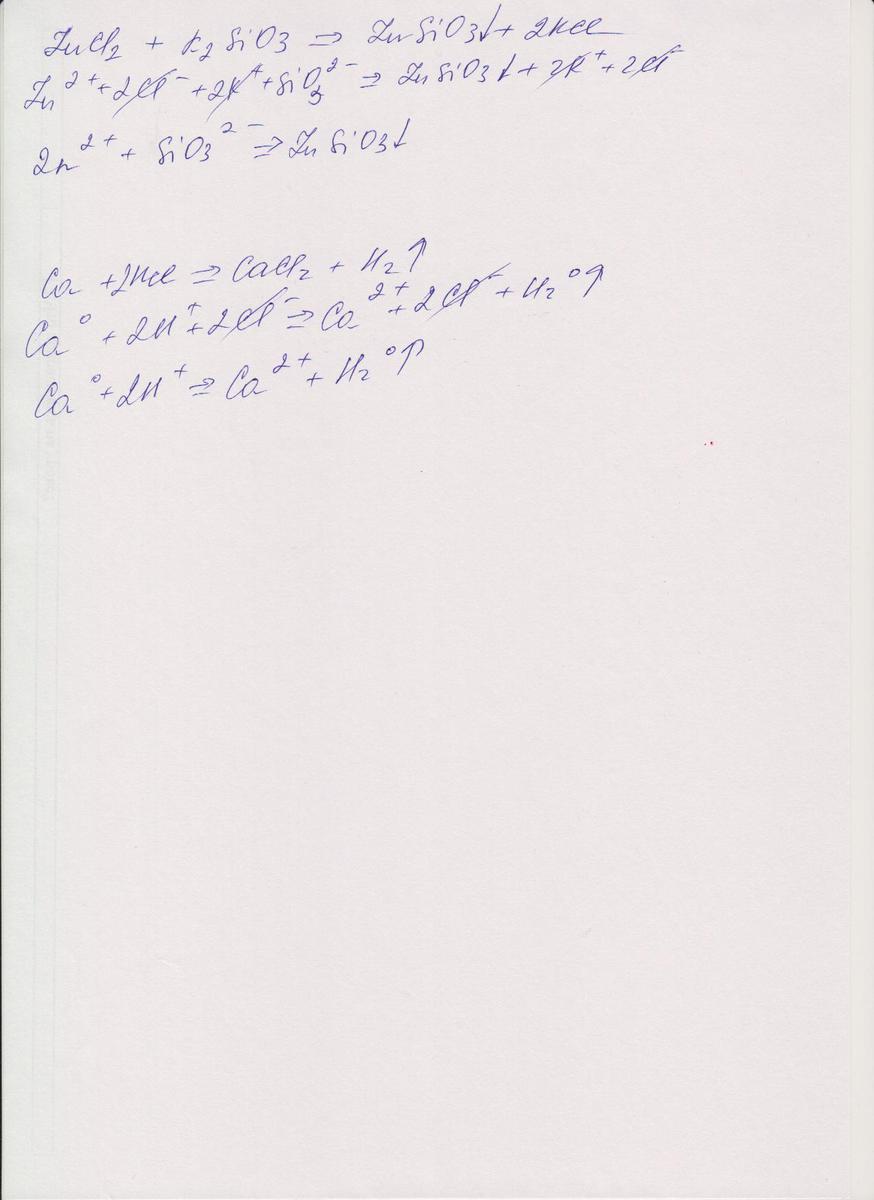 ZnCl₂ + K₂SiO₃ ⇒ ZnSiO₃↓ + 2KCl
Zn²⁺ + 2Cl⁻ + 2K⁺ + SiO₃²⁻ ⇒ ZnSiO₃↓ + 2K⁺ + 2Cl⁻
Zn²⁺ + SiO₃²⁻ ⇒ ZnSiO₃↓
Ca + 2HCl ⇒ CaCl₂ + H₂↑
Ca⁰ + 2H⁺ + 2Cl⁻ ⇒ Ca²⁺ + 2Cl⁻ + H₂⁰↑
Ca⁰ + 2H⁺ ⇒ Ca²⁺ + H₂⁰↑